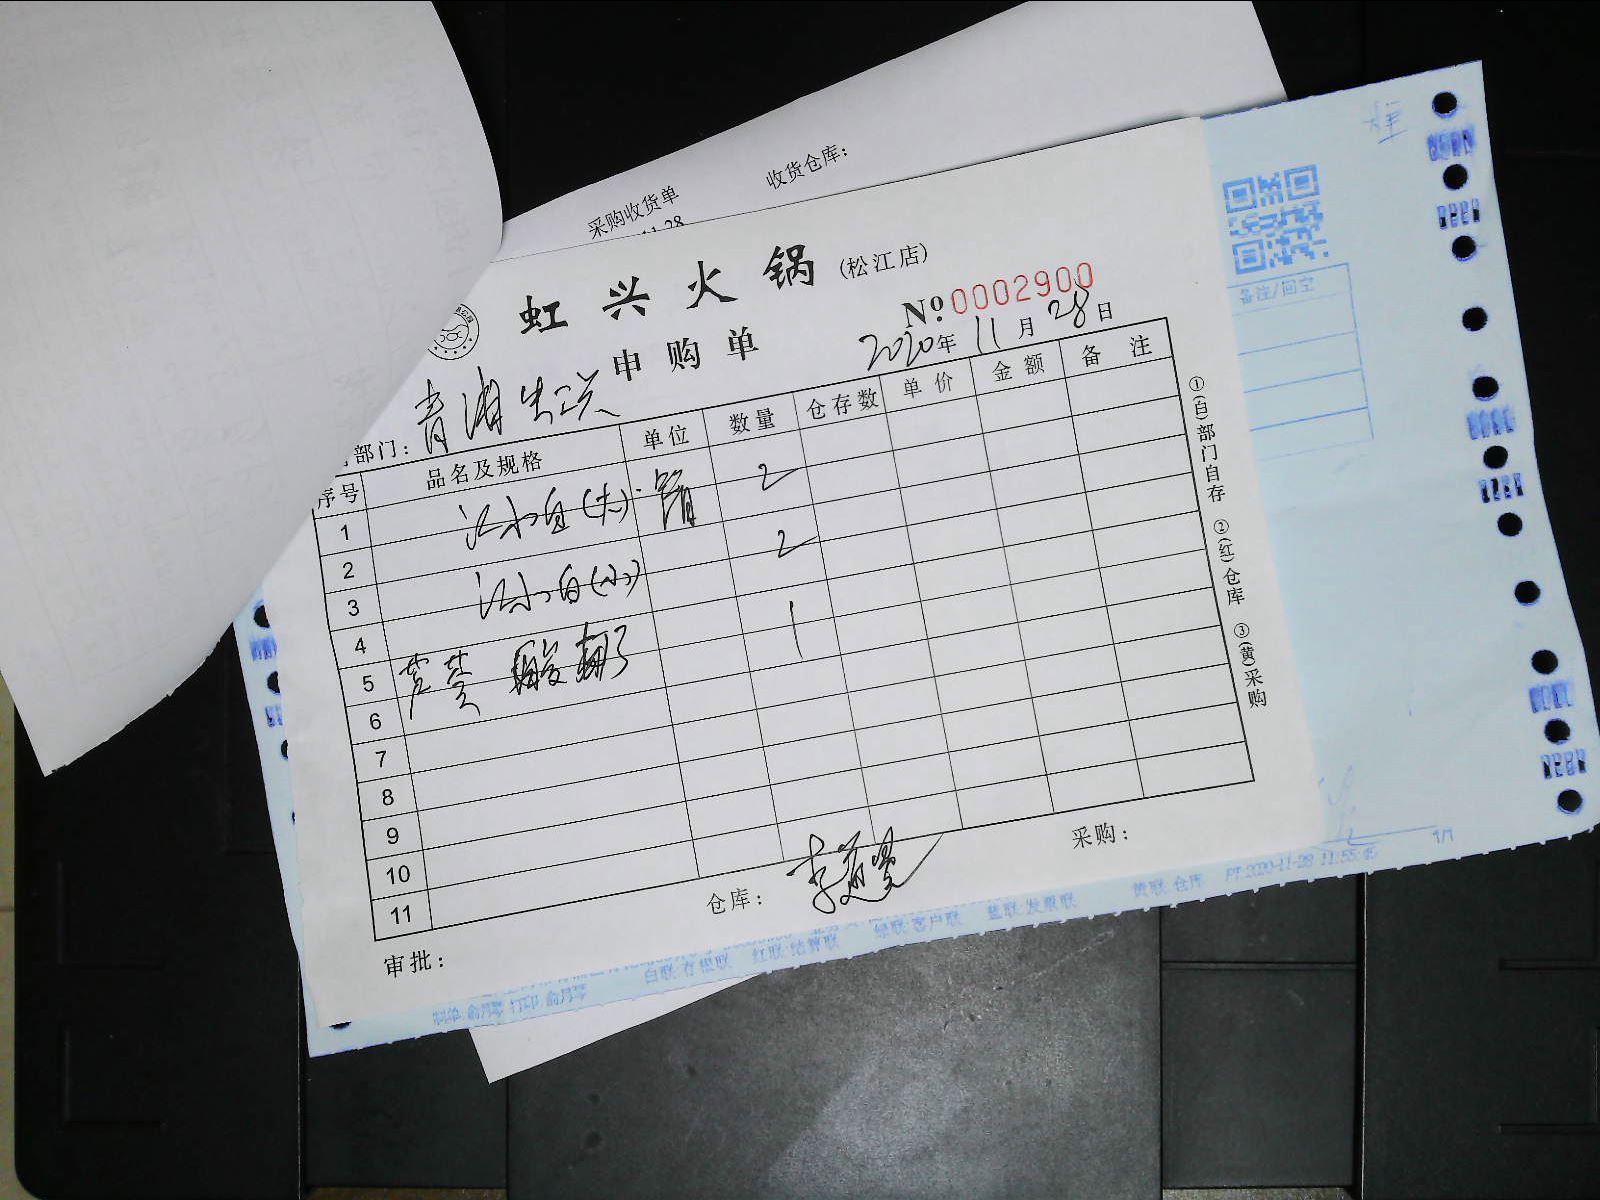 采购收货单
收货仓库：
11-28
虹兴火锅(松江店)
申购单
№0002900
2020年11月28日
部门：青浦
序号 品名及规格 单位 数量 仓存数 单价 金额 备注
1 江小白(大) 箱 2
2
3 江小白(小) 2
4
5 酸 1
6
7
8
9
10
11
审批：
仓库：
采购：
①(白)部门自存 ②(红)仓库 ③(黄)采购
备注/回空
白联:存根联 红联:结算联 绿联:客户联 蓝联:发票联 黄联:仓库 PT:2020-11-28 11:55:45
1/1